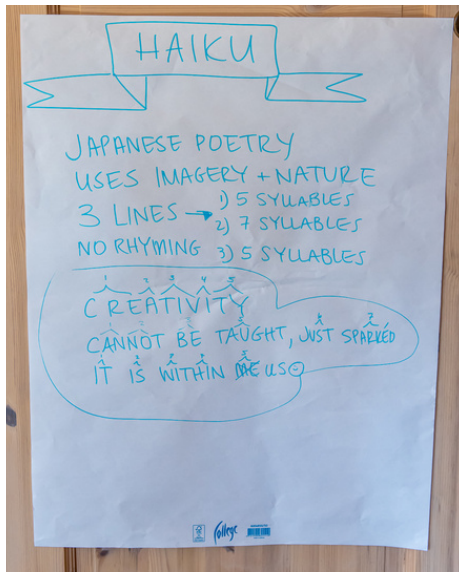 HAIKU
JAPANESE POETRY
USES IMAGERY + NATURE
3 LINES → 1) 5 SYLLABLES
2) 7 SYLLABLES
NO RHYMING 3) 5 SYLLABLES
1 2 3 4 5
CREATIVITY
CANNOT BE TAUGHT, JUST SPARKED
IT IS WITHIN ME US
College